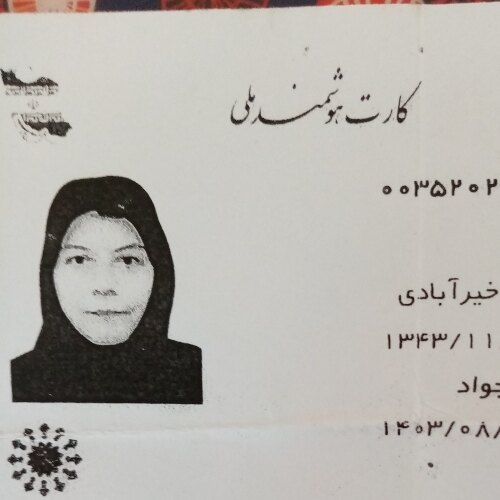 کارت هوشمند ملی
۰۰۳۵۲۰۲
خیرآبادی
۱۳۴۳/۱۱
جواد
۱۴۰۳/۰۸/